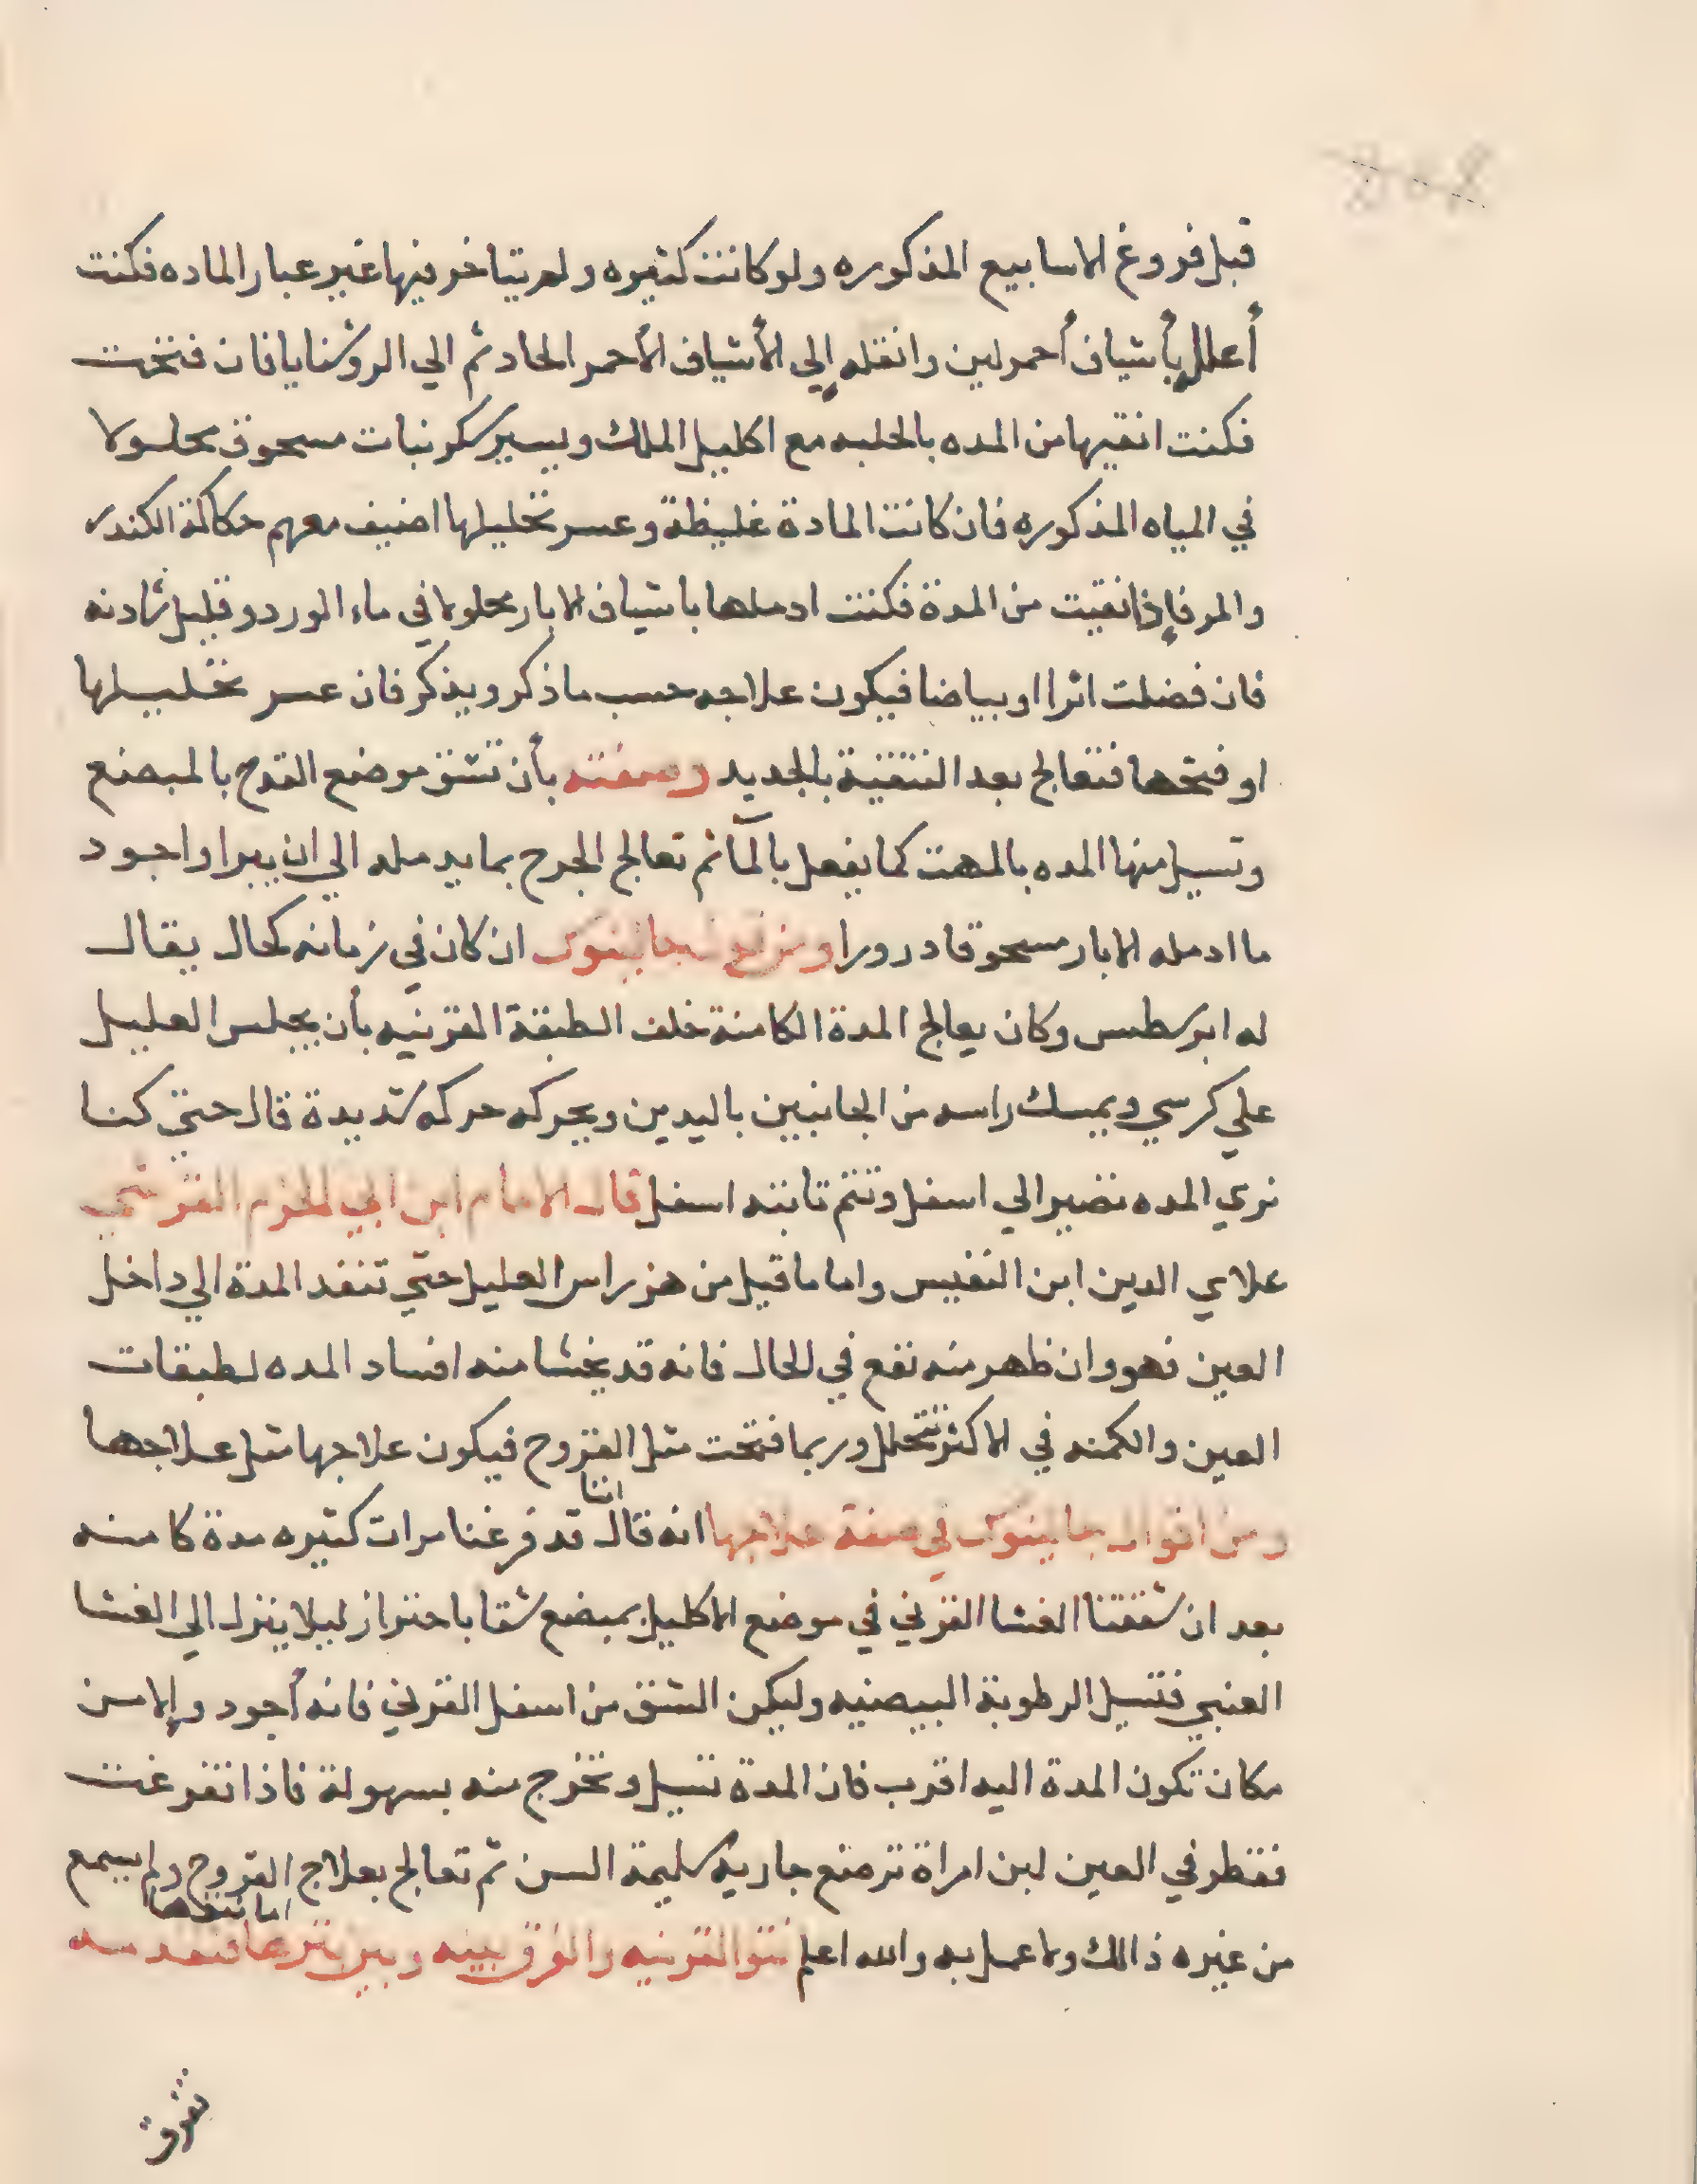 قبل فروغ الاسابيع المذكوره ولو كانت كثيره ولم يتاخر فيها غير عبار الماده فكنت
أعلل بأشياف أحمر لين وانقله إلي الأشياف الأحمر الحاد ثم الي الروشنايا فان فتخت
فكنت انقيها من المده بالحلبه مع اكليل الملك ويسير سكر نبات مسحوق محلولا
في المياه المذكوره فان كانت المادة غليظة وعسر تحليلها اضيف معهم حكاكة الكندر
والمر فإذا نقيت من المدة فكنت ادملها باشياف الابار محلولا في ماء الورد وقليل شادنه
فان فضلت اثرا او بياضا فيكون علاجه حسب ما ذكر ويذكر فان عسر تحليلها
او فتحها فتعالج بعد التنقية بالحديد وصفته بأن تشق موضع القرح بالمبضع
وتسيل منها المده بالمهت كما يفعل بالمآ ثم تعالج الجرح بما يدمله الي ان يبرا واجود
ما ادمله الابار مسحوقا درورا ومن قول جالينوس ان كان في زمانه كحال يقال
له ابرسطس وكان يعالج المدة الكامنة خلف الطبقة القرنيه بأن يجلس العليل
علي كرسي ويمسك راسه من الجانبين باليدين ويحركه حركه شديدة قال حتي كنا
نري المده تصير الي اسفل وتتم تابته اسفل قال الامام ابن ابي الحزم القرشي
علاي الدين ابن النفيس واما ما قيل من هز راس العليل حتي تنفد المدة الي داخل
العين فهو وان ظهر منه نفع في الحال فانه قد يخشا منه افساد المده لطبقات
العين والكمنه في الاكثر تتحلل وربما فتحت مثل القروح فيكون علاجها مثل علاجها
ومن اقوال جالينوس في صفة علاجها انه قال اننا قد فرغنا مرات كثيره مدة كامنه
بعد ان شققنا الغشا القرني في موضع الاكليل بمبضع شقا باحتراز ليلا ينزل الي الغشا
العنبي فتسيل الرطوبة البيضيه وليكن الشق من اسفل القرني فانه أجود وإلا من
مكان تكون المدة اليه اقرب فان المدة تسيل وتخرج منه بسهولة فاذا تفرغت
فقطر في العين لبن امراة ترضع جاريه سليمة السن ثم تعالج بعلاج القروح ولم يسمع
من غيره ذالك ولا عمل به والله اعلم نتو القرنيه والفرق بينه وبين بثرها اما نتوها فتقدمه